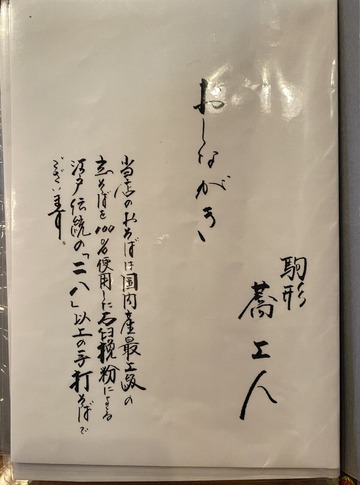 おしながき
駒形
蕎上人
当店のおそばは国内産最上級の
玄そばを100%使用した石臼挽粉による
江戸伝統の「二八」以上の手打そばで
ございます。